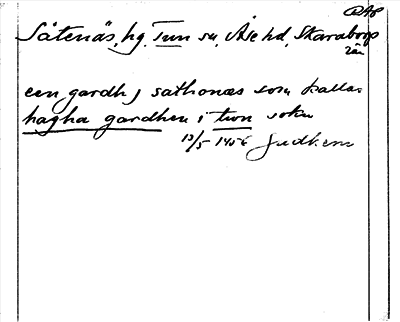 RAp
Såtenäs, hg. Tun sn, Åse hd, Skaraborgs
län
een gardh j sathonæs som kallas
hagha gardhen i twn sokn
13/5 1456